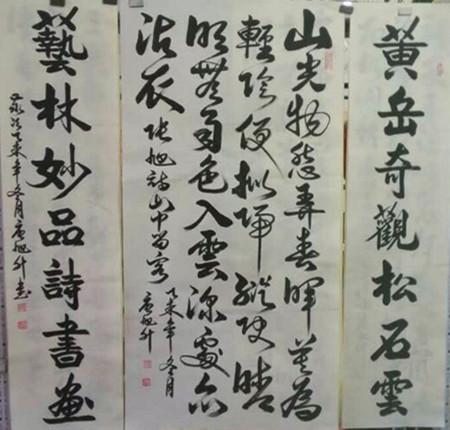 黃岳奇觀松石雲
山光物態弄春暉莫為
輕陰便擬歸縱使晴
明無雨色入雲深處亦
沾衣 張旭詩山中留客
未年冬月
唐旭升
藝林妙品詩書畫
未年冬月唐旭升書